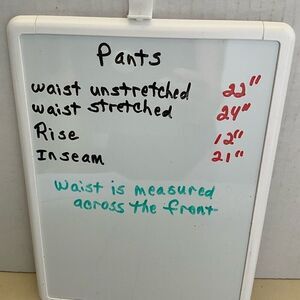 Pants
waist unstretched 22"
waist stretched 24"
Rise 12"
Inseam 21"
waist is measured
across the front